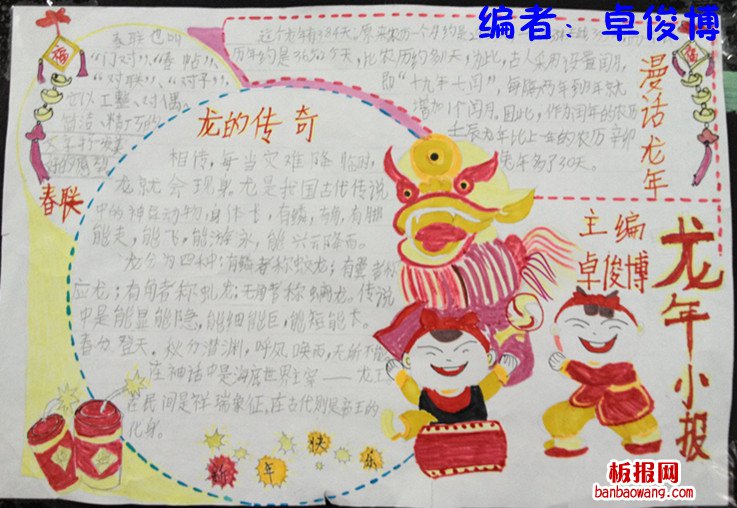 编者：卓俊博
福
春联也叫
“门对”、“春帖”、
“对联”、“对子”，
它以工整、对偶、
简洁、精巧的
春联
这个龙年有384天。原来农历一个月约是
历年约是365天，比农历约多11天，为此，古人采用设置闰月，
即“十九年七闰”，每隔两年到3年就
增加1个闰月。因此，作为闰年的农历
壬辰龙年比上一年的农历辛卯
兔年多了30天。
福
漫话龙年
龙的传奇
相传，每当灾难降临时，
龙就会现身。龙是我国古代传说
中的神异动物，身体长，有鳞，有角，有脚，
能走，能飞，能游泳，能兴云降雨。
龙分为四种：有鳞者称蛟龙；有翼者称
应龙；有角者称虬龙；无角者称螭龙。传说
中是能显能隐，能细能巨，能短能长。
春分登天，秋分潜渊，呼风唤雨，无所不能
在神话中是海底世界主宰——龙王
在民间是祥瑞象征，在古代则是帝王的
化身。
主编
卓俊博
龙年小报
新年快乐
板报网
banbaowang.com